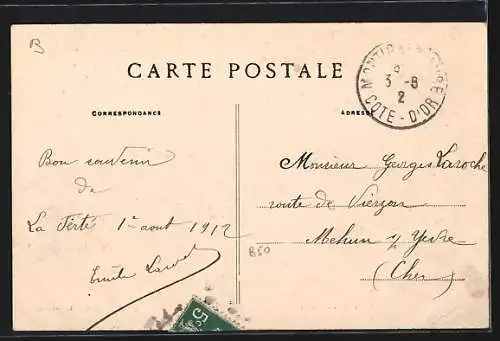 B
CARTE POSTALE
CORRESPONDANCE
ADRESSE
3 -8
2
COTE - D'OR
Bon souvenir
de
La Ferté 1er aout 1912
Emile
Monsieur Georges Laroche
route de Vierzon
Mehun s/ Yevre
(Cher)
B50
5c